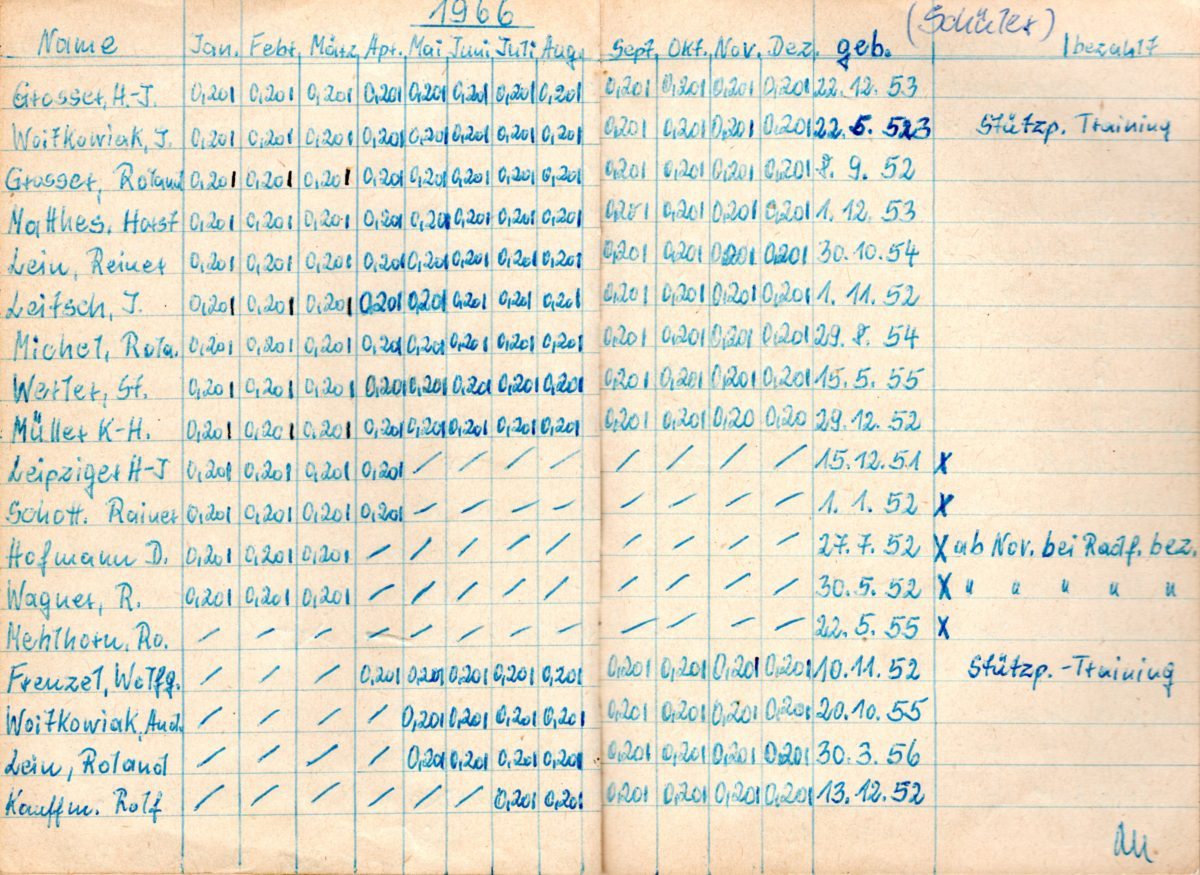 1966
(Schüler)
Name Jan. Febr. März Apr. Mai Juni Juli Aug. Sept. Okt. Nov. Dez. geb. bezahlt
Grosser, H-J. 0,20 0,20 0,20 0,20 0,20 0,20 0,20 0,20 0,20 0,20 0,20 0,20 22.12.53
Woitkowiak, J. 0,20 0,20 0,20 0,20 0,20 0,20 0,20 0,20 0,20 0,20 0,20 0,20 22.5.53 Stützp. Training
Grosser, Roland 0,20 0,20 0,20 0,20 0,20 0,20 0,20 0,20 0,20 0,20 0,20 0,20 8.9.52
Matthes, Horst 0,20 0,20 0,20 0,20 0,20 0,20 0,20 0,20 0,20 0,20 0,20 0,20 1.12.53
Lein, Reiner 0,20 0,20 0,20 0,20 0,20 0,20 0,20 0,20 0,20 0,20 0,20 0,20 30.10.54
Leitsch, J. 0,20 0,20 0,20 0,20 0,20 0,20 0,20 0,20 0,20 0,20 0,20 0,20 1.11.52
Michel, Rola. 0,20 0,20 0,20 0,20 0,20 0,20 0,20 0,20 0,20 0,20 0,20 0,20 29.8.54
Werler, St. 0,20 0,20 0,20 0,20 0,20 0,20 0,20 0,20 0,20 0,20 0,20 0,20 15.5.55
Müller K-H. 0,20 0,20 0,20 0,20 0,20 0,20 0,20 0,20 0,20 0,20 0,20 0,20 29.12.52
Leipziger H-J 0,20 0,20 0,20 0,20 / / / / / / / / 15.12.51 X
Schott. Rainer 0,20 0,20 0,20 0,20 / / / / / / / / 1.1.52 X
Hofmann D. 0,20 0,20 0,20 / / / / / / / / / 27.7.52 X ab Nov. bei Radf. bez.
Wagner, R. 0,20 0,20 0,20 / / / / / / / / / 30.5.52 X " " " " "
Mehlhorn, Ro. / / / / / / / / / / / / 22.5.55 X
Frenzel, Wolfg. / / / 0,20 0,20 0,20 0,20 0,20 0,20 0,20 0,20 0,20 10.11.52 Stützp.-Training
Woitkowiak, And. / / / / 0,20 0,20 0,20 0,20 0,20 0,20 0,20 0,20 20.10.55
Lein, Roland / / / / 0,20 0,20 0,20 0,20 0,20 0,20 0,20 0,20 30.3.56
Kauffm. Rolf / / / / / / 0,20 0,20 0,20 0,20 0,20 0,20 13.12.52